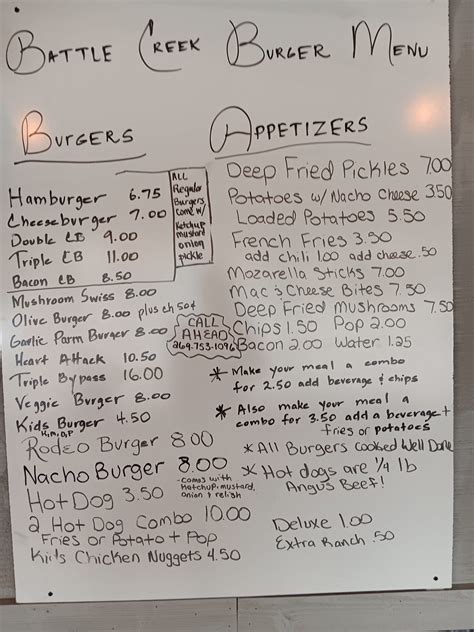 Battle Creek Burger Menu
Burgers
Hamburger 6.75
Cheeseburger 7.00
Double CB 9.00
Triple CB 11.00
Bacon CB 8.50
ALL
Regular
Burgers
come w/
Ketchup
mustard
onion
pickle
Mushroom Swiss 8.00
Olive Burger 8.00 plus ch 50¢
Garlic Parm Burger 8.00
Heart Attack 10.50
Triple Bypass 16.00
Veggie Burger 8.00
Kids Burger 4.50
Rodeo Burger 8.00
Nacho Burger 8.00
Hot Dog 3.50
- comes with
Ketchup, mustard,
onion & relish
2 Hot Dog Combo 10.00
Fries or Potato + Pop
Kids Chicken Nuggets 4.50
CALL
AHEAD
269-753-1096
Appetizers
Deep Fried Pickles 7.00
Potatoes w/ Nacho Cheese 3.50
Loaded Potatoes 5.50
French Fries 3.50
add chili 1.00 add cheese .50
Mozarella Sticks 7.00
Mac & Cheese Bites 7.50
Deep Fried Mushrooms 7.50
Chips 1.50 Pop 2.00
Bacon 2.00 Water 1.25
* Make your meal a combo
for 2.50 add beverage & chips
* Also make your meal a
combo for 3.50 add a beverage +
fries or potatoes
* All Burgers Cooked Well Done
* Hot dogs are 1/4 lb
Angus Beef!
Deluxe 1.00
Extra Ranch .50